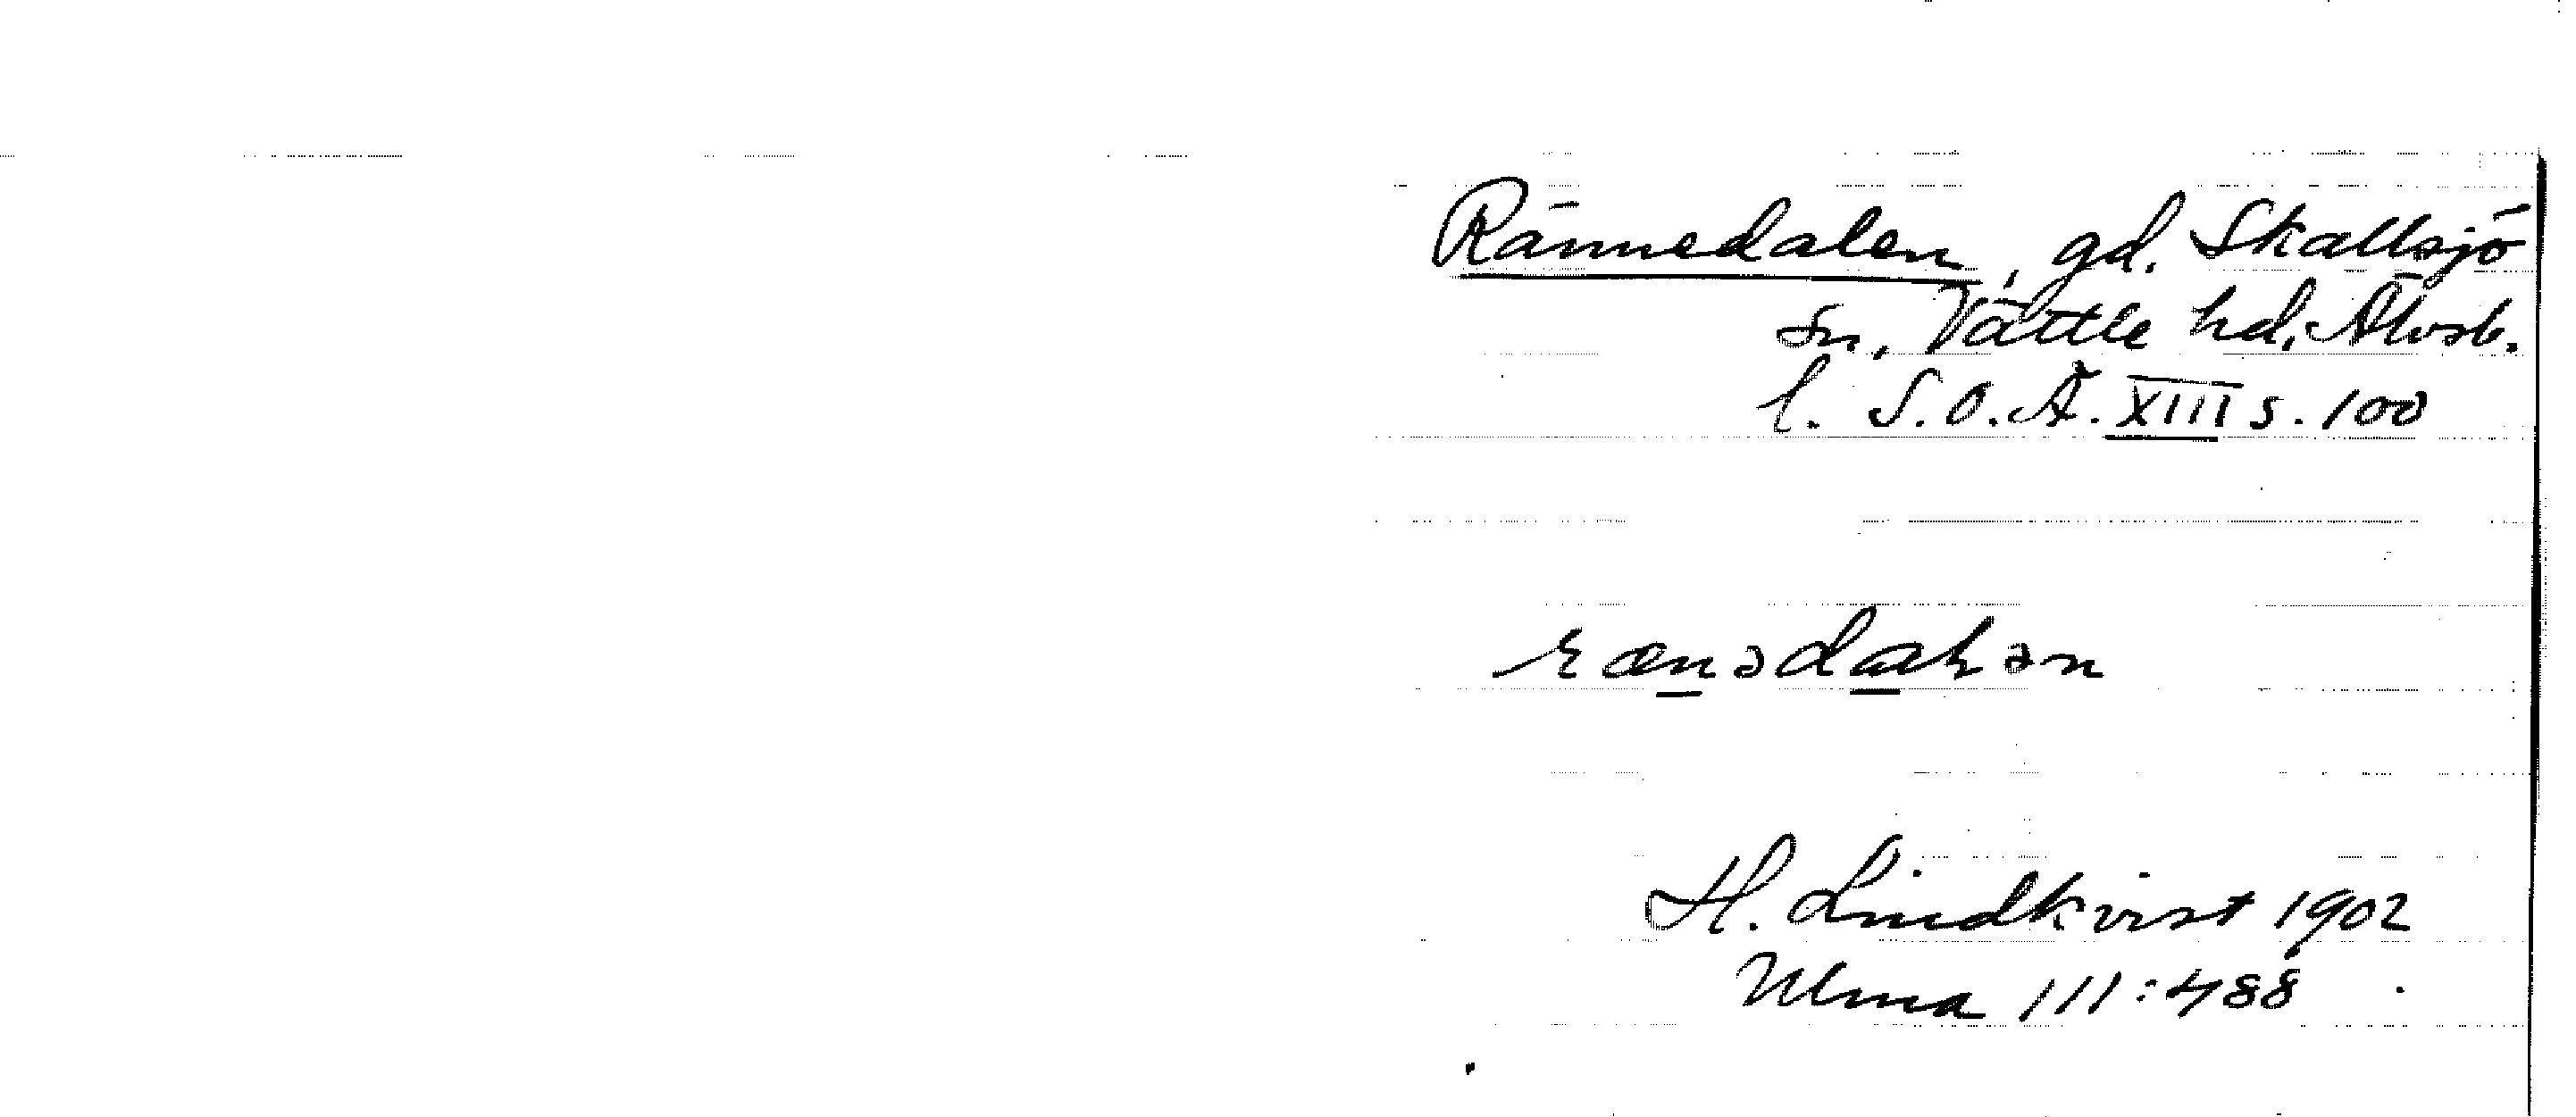 Rännedalen, gd. Skallsjö
sn, Vättle hd. Älvsb.
l. S.O.Ä. XIII s. 100
rænədaƚən
H. Lindkvist 1902
Ulma 111:488